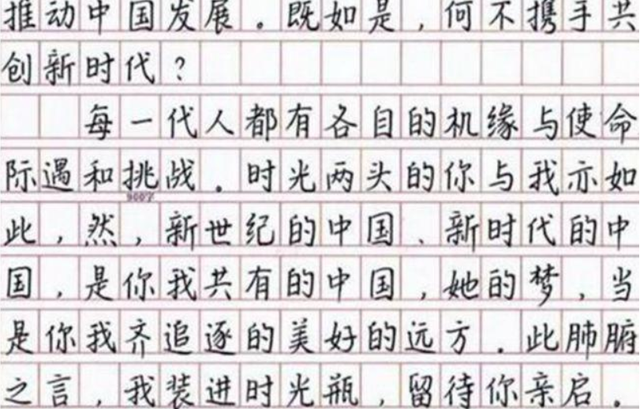 推动中国发展。既如是，何不携手共
创新时代？
每一代人都有各自的机缘与使命
际遇和挑战。时光两头的你与我亦如
900字
此，然，新世纪的中国、新时代的中
国，是你我共有的中国，她的梦，当
是你我齐追逐的美好的远方。此肺腑
之言，我装进时光瓶，留待你亲启。